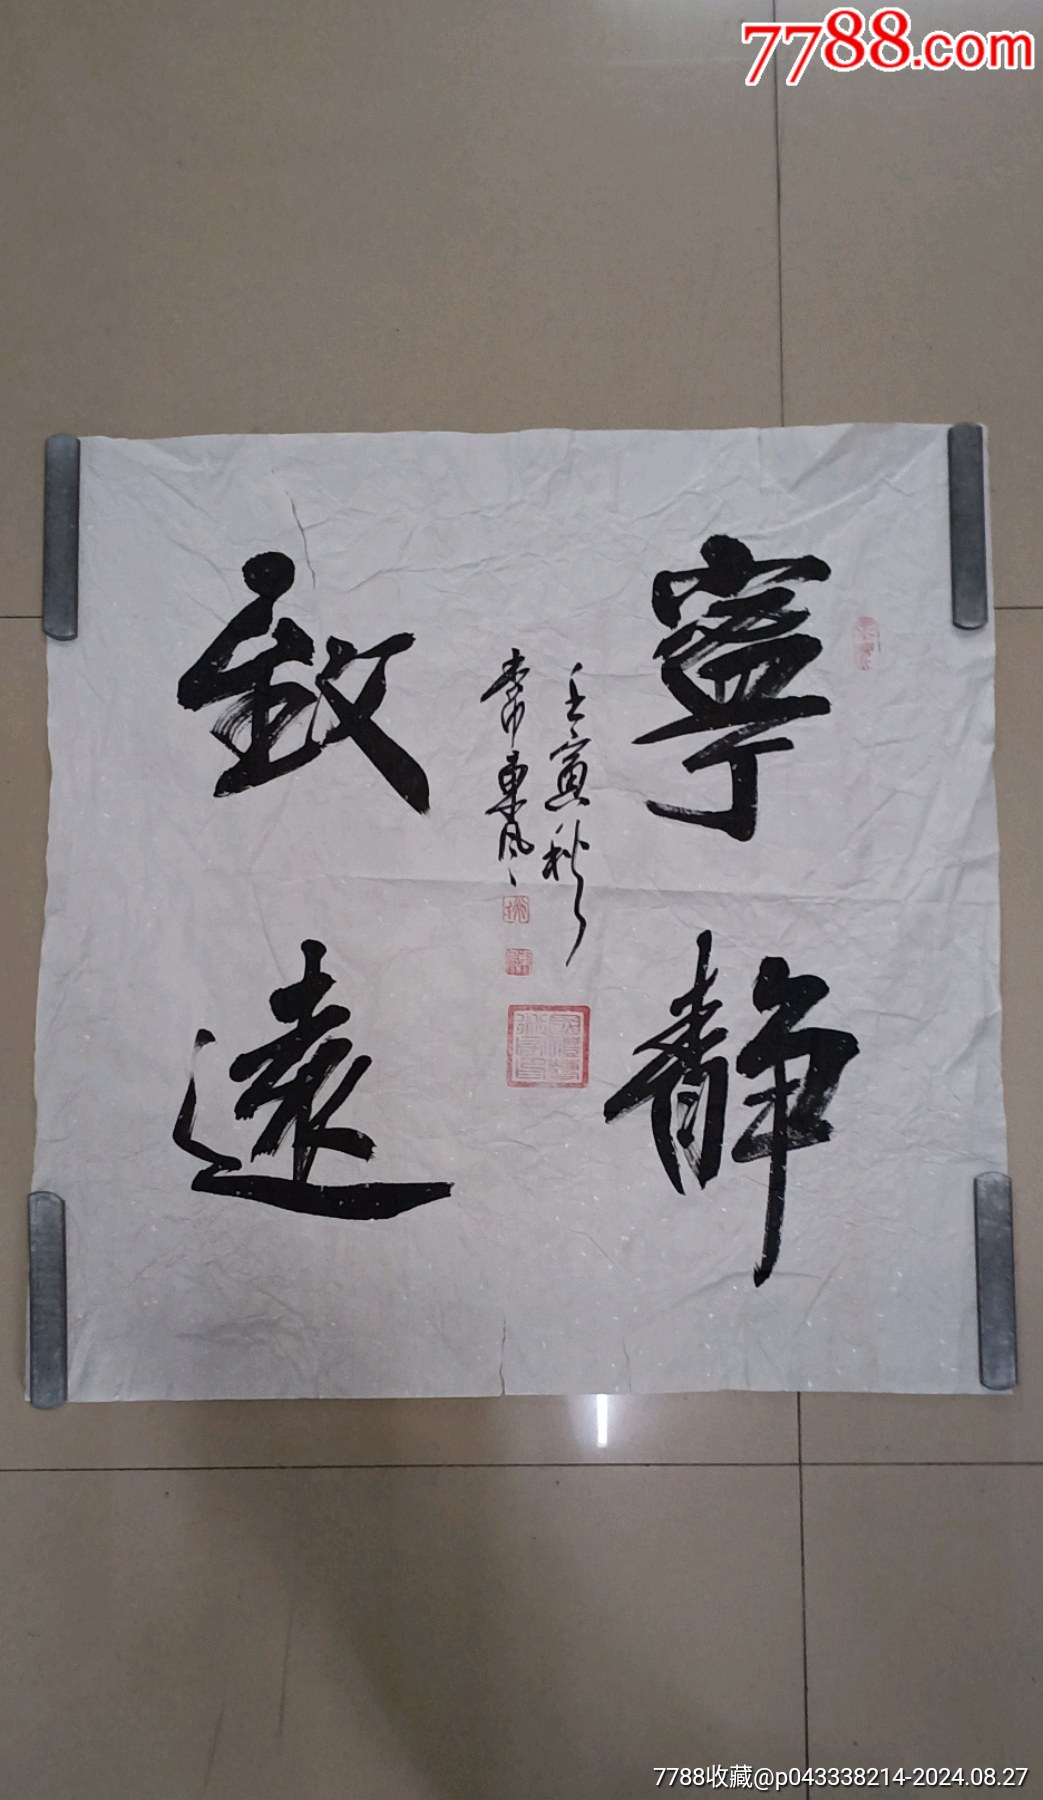 7788.com
寧靜
致遠
壬寅秋
東風
7788收藏@p043338214-2024.08.27